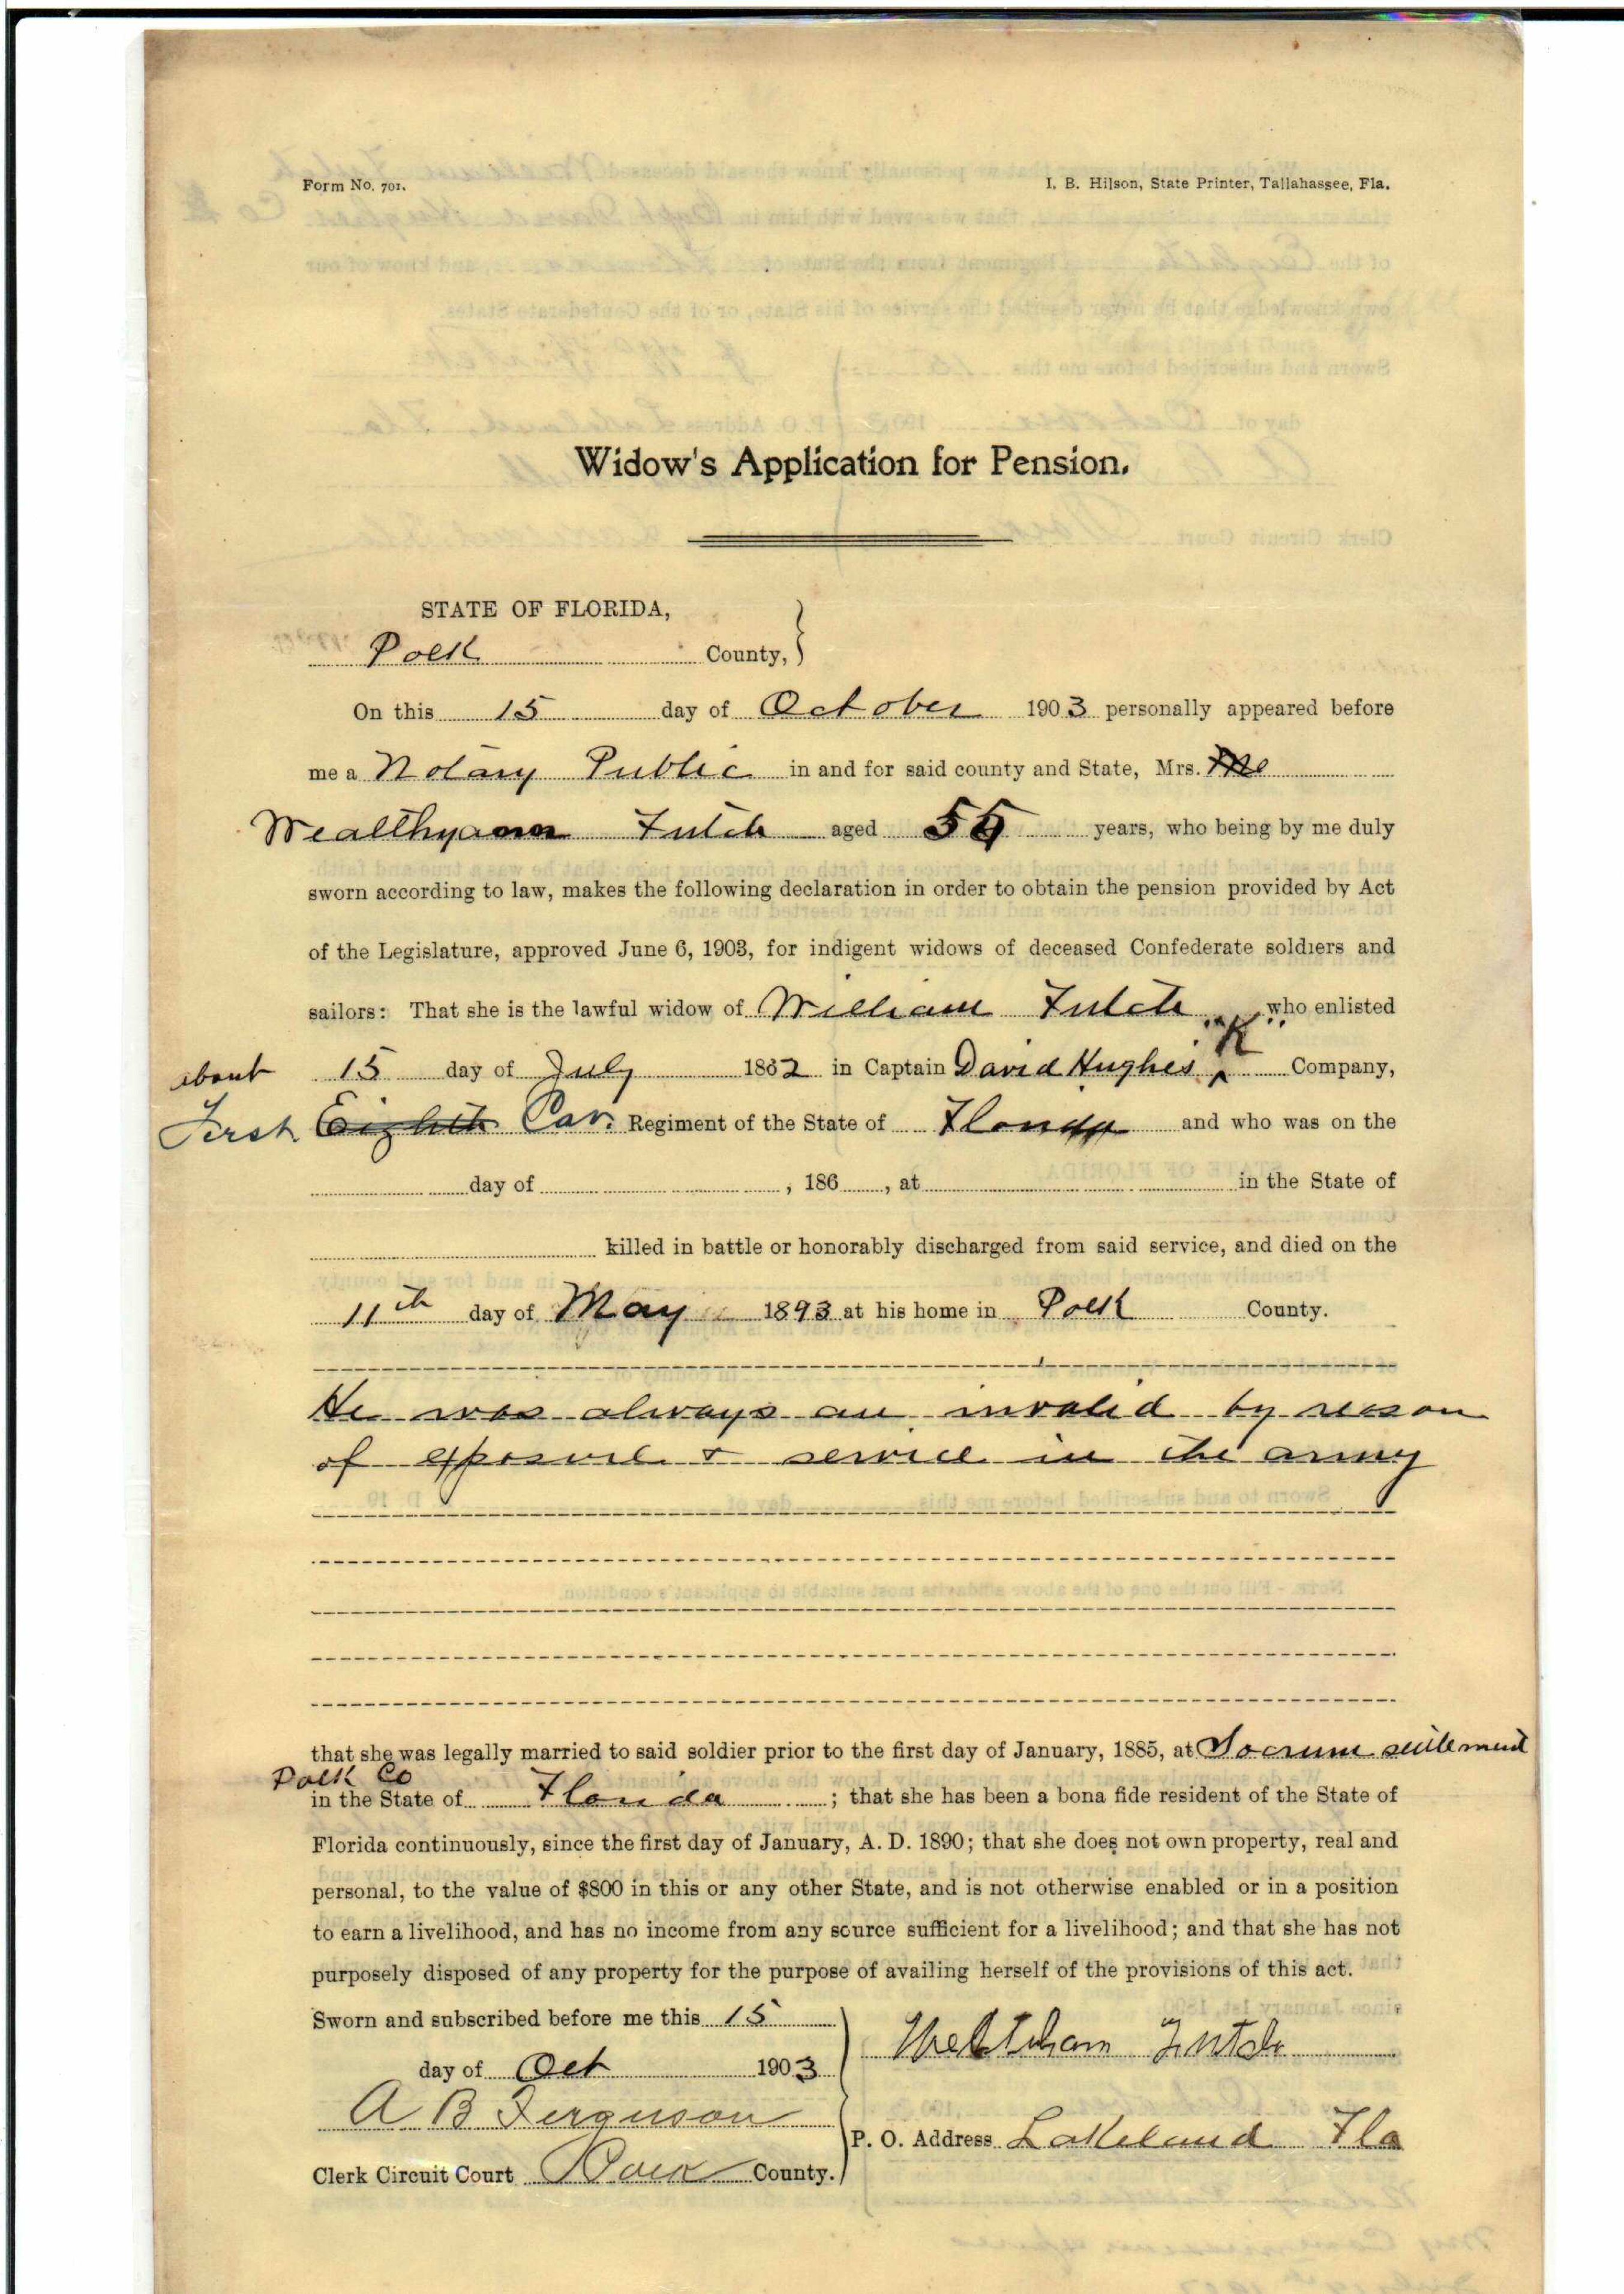 Form No. 701.
I. B. Hilson, State Printer, Tallahassee, Fla.
Widow's Application for Pension.
STATE OF FLORIDA,
Polk County,
On this 15 day of October 1903 personally appeared before
me a Notary Public in and for said county and State, Mrs.
Wealthyann Futch aged years, who being by me duly
sworn according to law, makes the following declaration in order to obtain the pension provided by Act
of the Legislature, approved June 6, 1903, for indigent widows of deceased Confederate soldiers and
sailors: That she is the lawful widow of William Futch who enlisted
about 15 day of July 1862 in Captain David Hughes "K" Company,
First Eighth Cav. Regiment of the State of Florida and who was on the
day of , 186 , at in the State of
killed in battle or honorably discharged from said service, and died on the
11th day of May 1893 at his home in Polk County.
He was always an invalid by reason
of exposure & service in the army
that she was legally married to said soldier prior to the first day of January, 1885, at Socrum settlement
Polk Co
in the State of Florida ; that she has been a bona fide resident of the State of
Florida continuously, since the first day of January, A. D. 1890; that she does not own property, real and
personal, to the value of $800 in this or any other State, and is not otherwise enabled or in a position
to earn a livelihood, and has no income from any source sufficient for a livelihood; and that she has not
purposely disposed of any property for the purpose of availing herself of the provisions of this act.
Sworn and subscribed before me this 15
day of Oct 1903
Futch
A B Ferguson
P. O. Address Lakeland Fla
Clerk Circuit Court Polk County.